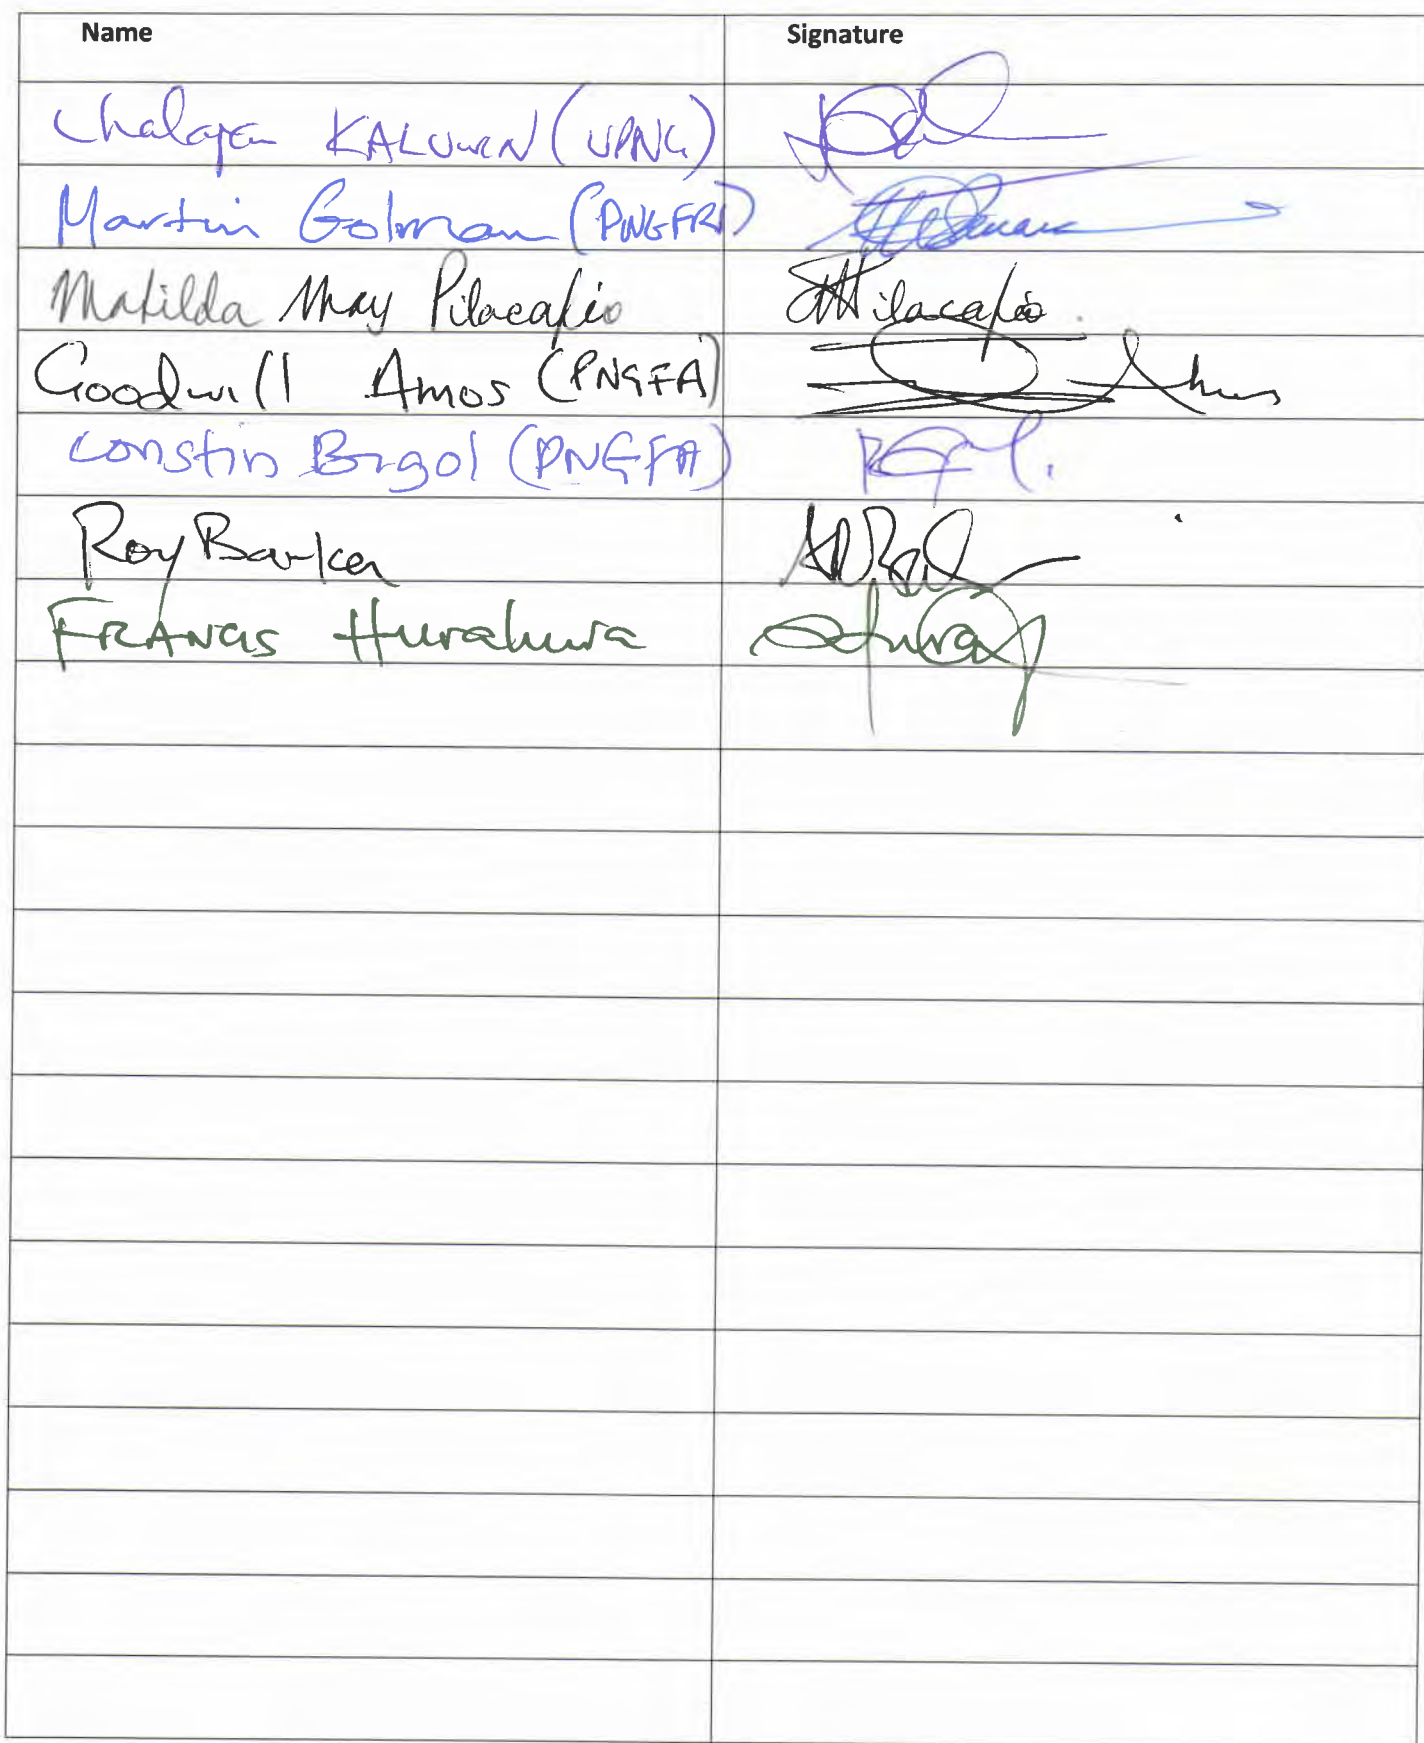 Name Signature
Chalapan KALUWIN (UPNG)
Martin Golman (PNGFRI)
Matilda May Pilacapio Pilacapio
Goodwill Amos (PNGFA) Amos
Constin Bigol (PNGFA)
Roy Banka
FRANCIS Hurahura